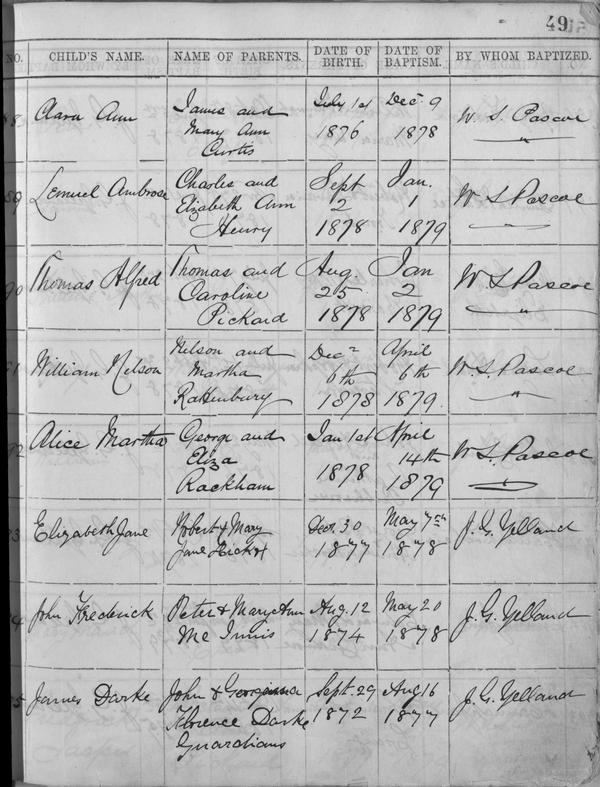 49
NO. CHILD'S NAME. NAME OF PARENTS. DATE OF BIRTH. DATE OF BAPTISM. BY WHOM BAPTIZED.
8 Clara Ann James and July 1st Dec 9 W. S. Pascoe
Mary Ann 1876 1878 "
Curtis
89 Lemuel Ambrose Charles and Sept Jan. W S Pascoe
Elizabeth Ann 2 1
Henry 1878 1879
90 Thomas Alfred Thomas and Aug. Jan W S Pascoe
Caroline 25 2 "
Pickard 1878 1879
91 William Nelson Nelson and Dec April W. S. Pascoe
Martha 6th 6th "
Rattenbury 1878 1879.
92 Alice Martha George and Jan 1st April W S Pascoe
Eliza 1878 14th
Rackham 1879
3 Elizabeth Jane Robert & Mary Dec. 30 May 7th J. G. Yelland
Jane 1877 1878
4 John Frederick Peter & Mary Ann Aug. 12 May 20 J. G. Yelland
Mc Innis 1874 1878
5 James Darke John & Georginna Sept. 29 Aug 16 J. G. Yelland
Florence Darke 1872 1877
Guardians